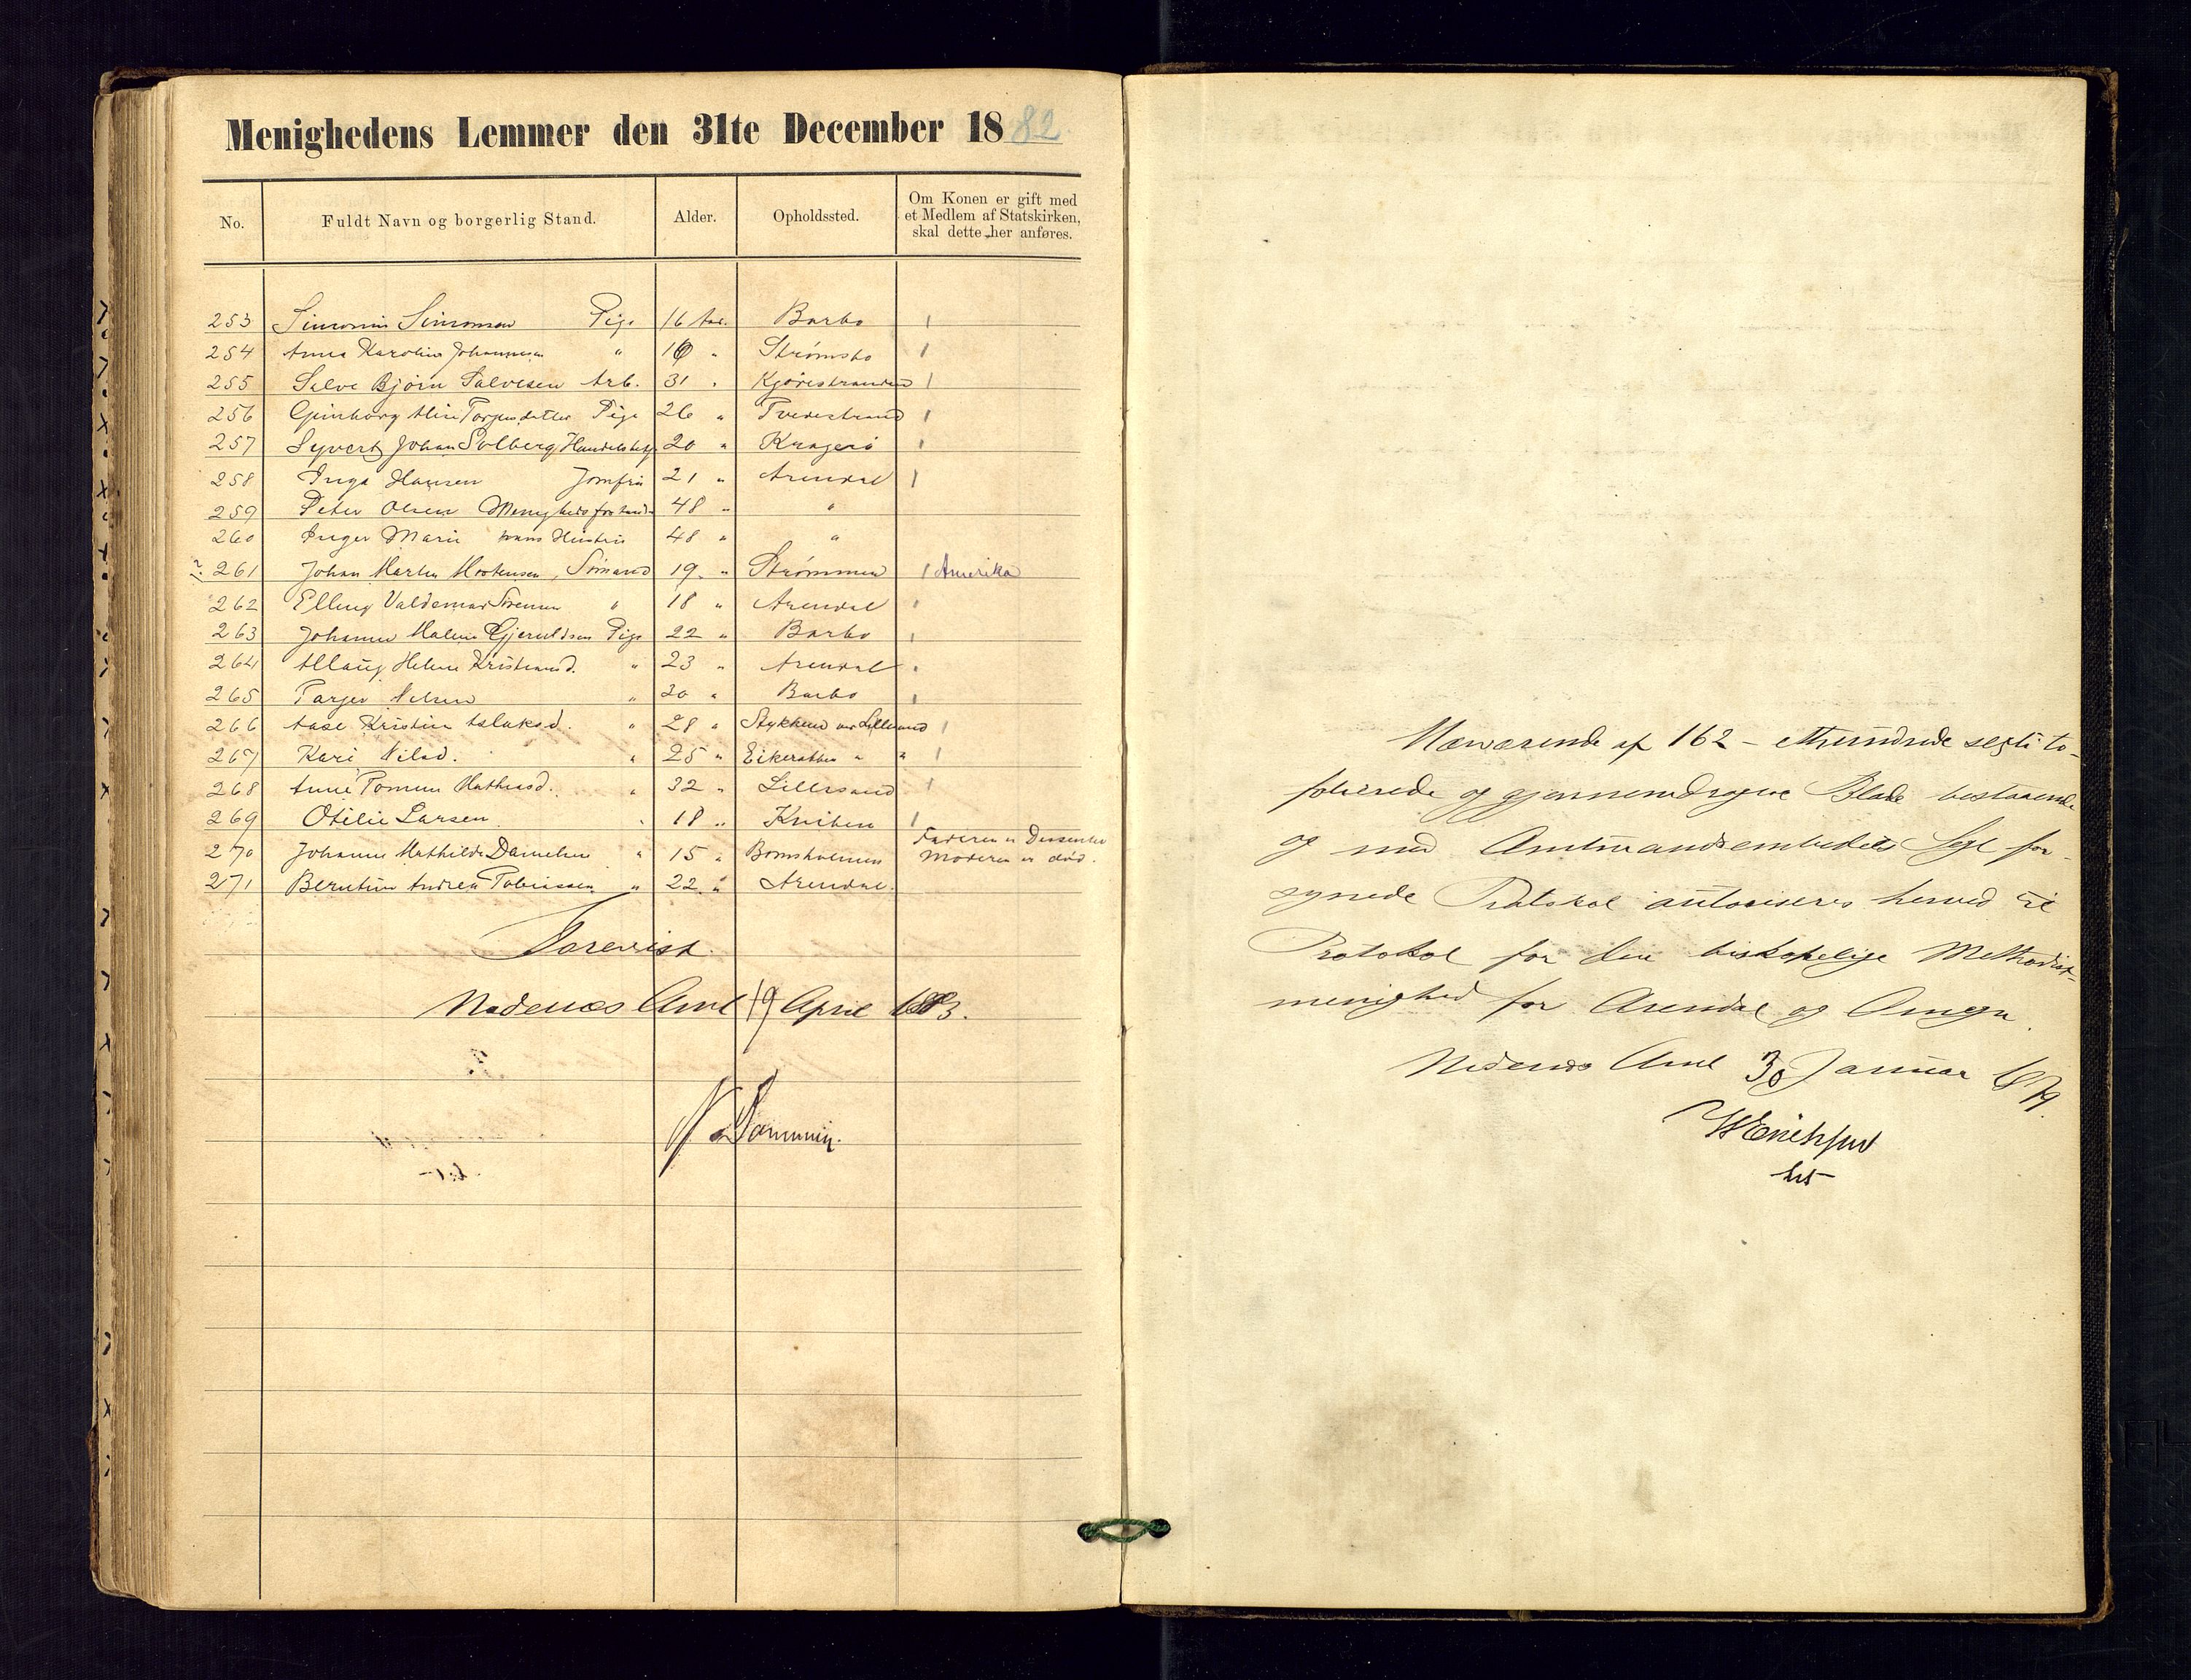 Menighedens Lemmer den 31te December 1882.
No. Fuldt Navn og borgerlig Stand. Alder. Opholdssted. Om Konen er gift med et Medlem af Statskirken, skal dette her anføres.
253 Simonsen Pige 16 Aar. Barbo
254 Anna Karoline Johannesen " 16 " Strømsbo
255 Selve Bjørn Salvesen Arb. 31 "
256 Gunborg Aline Torjusdatter Pige 26 " Tvedestrand
257 Syvert Johan Solberg 20 " Kragerö
258 Inga Hansen Jomfru 21 " Arendal
259 Peter Olsen 48 " "
260 Inger Marie hans Hustru 48 " "
261 Johan Martin Mortensen, Sømand 19 " Strømmen Amerika
262 Elling Valdemar Sørensen " 18 " Arendal
263 Johanne Malene Gjeruldsen Pige 22 " Barbo
264 Helene Kristensd. " 23 " Arendal
265 Nilsen " 20 " Barbo
266 Aase Kristine Aslaksd. " 28 " Lillesand
267 Kari Nilsd. " 25 " " "
268 Anne Mathiasd. " 32 " Lillesand
269 Otilie Larsen " 18 "
270 Johanne Mathilde Danielsen " 15 " Bomsholmen Faderen er Dissenter Moderen er død.
271 Berntine Andrea Tobiassen " 22 " Arendal.
Forevist.
Nedenes Amt 19 April 1883.
Nærværende af 162 – ethundrede sexti to –
folierede og gjennemdragne Blade bestaaende
og med Amtmandsembedets Segl for-
synede Protokol autoriseres herved til
Protokol for den biskopelige Methodist-
menighed for Arendal og Omegn.
Nedenes Amt 30 Januar 1879.